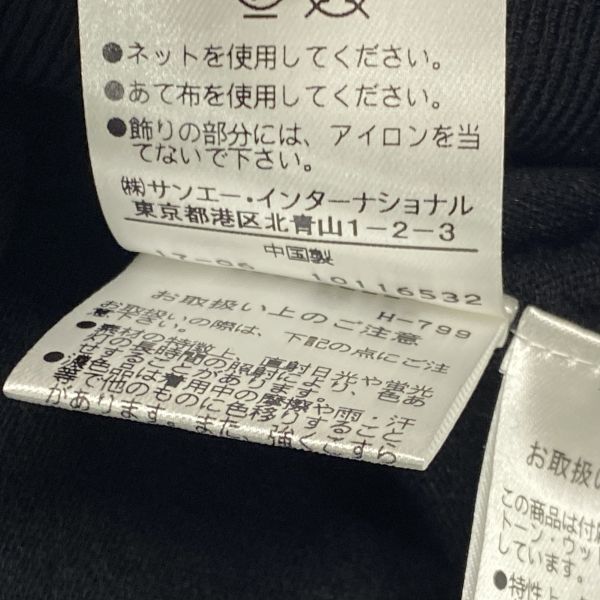 ●ネットを使用してください。
●あて布を使用してください。
●飾りの部分には、アイロンを当
てないで下さい。
(株)サンエー・インターナショナル
東京都港区北青山1-2-3
中国製
10116532
H-799
お取扱い上のご注意
お取扱いの際は、下記の点にご注
意下さい。
●素材の特徴上、直射日光や蛍光
灯の長時間の照射により、色あ
せすることがあります。
●濃色品は着用中の摩擦や雨・汗
等で他のものに色移りすること
があります。また、強くこすら
お取扱い
この商品は付属
トーン・ウッ
しています。
●特性上